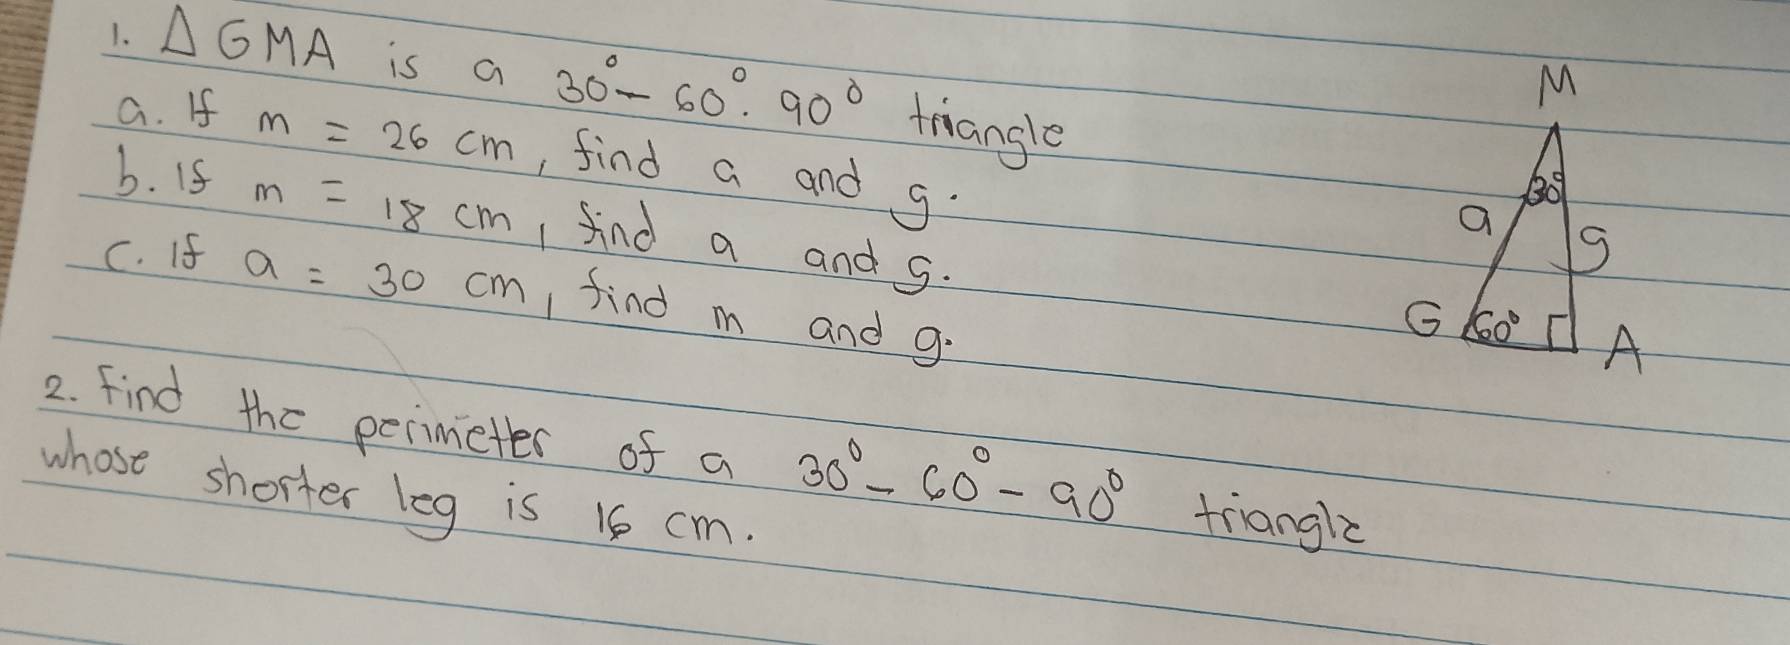 1. △GMA is a 30°-60°.90° triangle
a. If m = 26 cm, find a and g.
b. If m = 18 cm, find a and g.
c. If a = 30 cm, find m and g.
2. Find the perimeter of a 30°-60°-90° triangle
whose shorter leg is 16 cm.
M
30°
a
g
G
60°
A